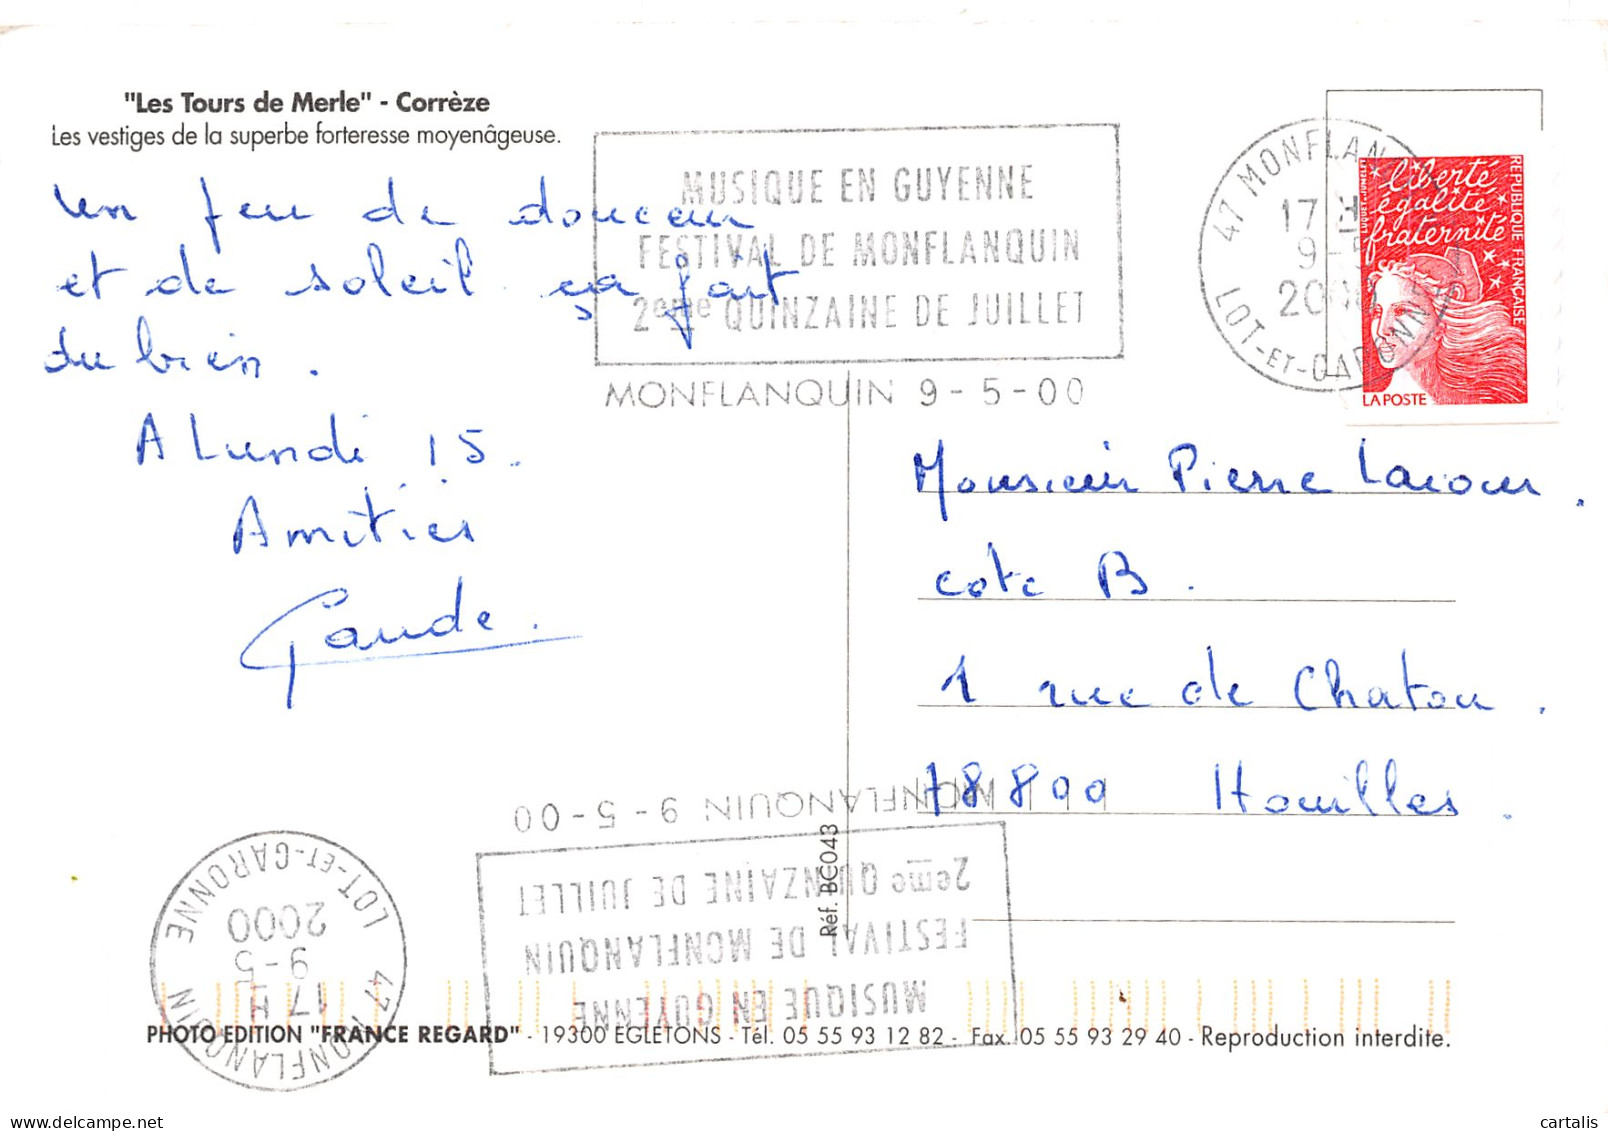 "Les Tours de Merle" - Corrèze
Les vestiges de la superbe forteresse moyenâgeuse.
Un peu de douceur
et de soleil ça fait
du bien.
A Lundi 15.
Amitiés
MUSIQUE EN GUYENNE
FESTIVAL DE MONFLANQUIN
2eme QUINZAINE DE JUILLET
MONFLANQUIN 9-5-00
47 MONFLANQUIN
17 H
9-5
2000
LOT-ET-GARONNE
liberté
égalité
fraternité
REPUBLIQUE FRANÇAISE
LUQUET-JUMELET
LA POSTE
Monsieur Pierre Lacour.
cote B.
1 rue de Chatou.
78800 Houilles.
Réf. BC043
MONFLANQUIN 9-5-00
2eme QUINZAINE DE JUILLET
FESTIVAL DE MONFLANQUIN
MUSIQUE EN GUYENNE
47 MONFLANQUIN
17 H
9-5
2000
LOT-ET-GARONNE
PHOTO EDITION "FRANCE REGARD" - 19300 EGLETONS - Tél. 05 55 93 12 82 - Fax. 05 55 93 29 40 - Reproduction interdite.
www.delcampe.net
cartalis